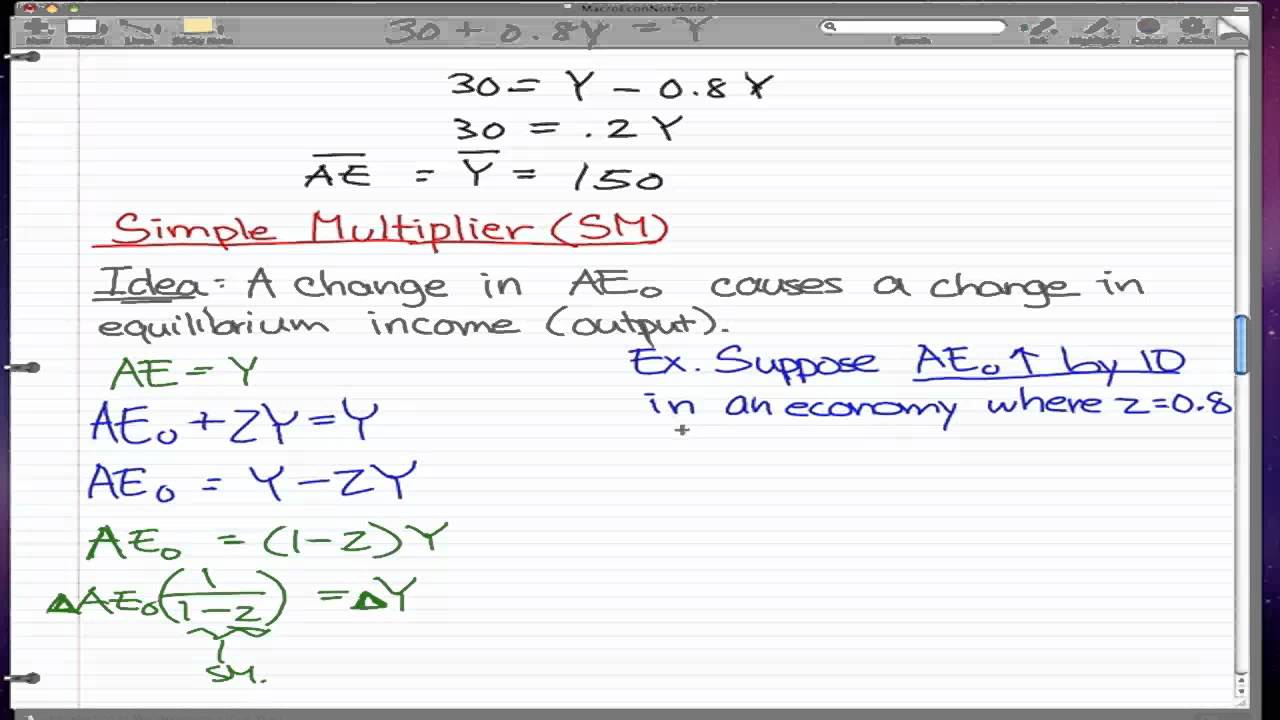 MacroEconNotes.nb
30 + 0.8Y = Y
Search
30 = Y - 0.8Y
30 = .2Y
A̅E̅ = Y̅ = 150
Simple Multiplier (SM)
Idea: A change in AE₀ causes a change in
equilibrium income (output).
AE = Y
AE₀ + ZY = Y
AE₀ = Y - ZY
AE₀ = (1-Z)Y
ΔAE₀(1/(1-Z)) = ΔY
SM.
Ex. Suppose AE₀↑ by 10
in an economy where z=0.8